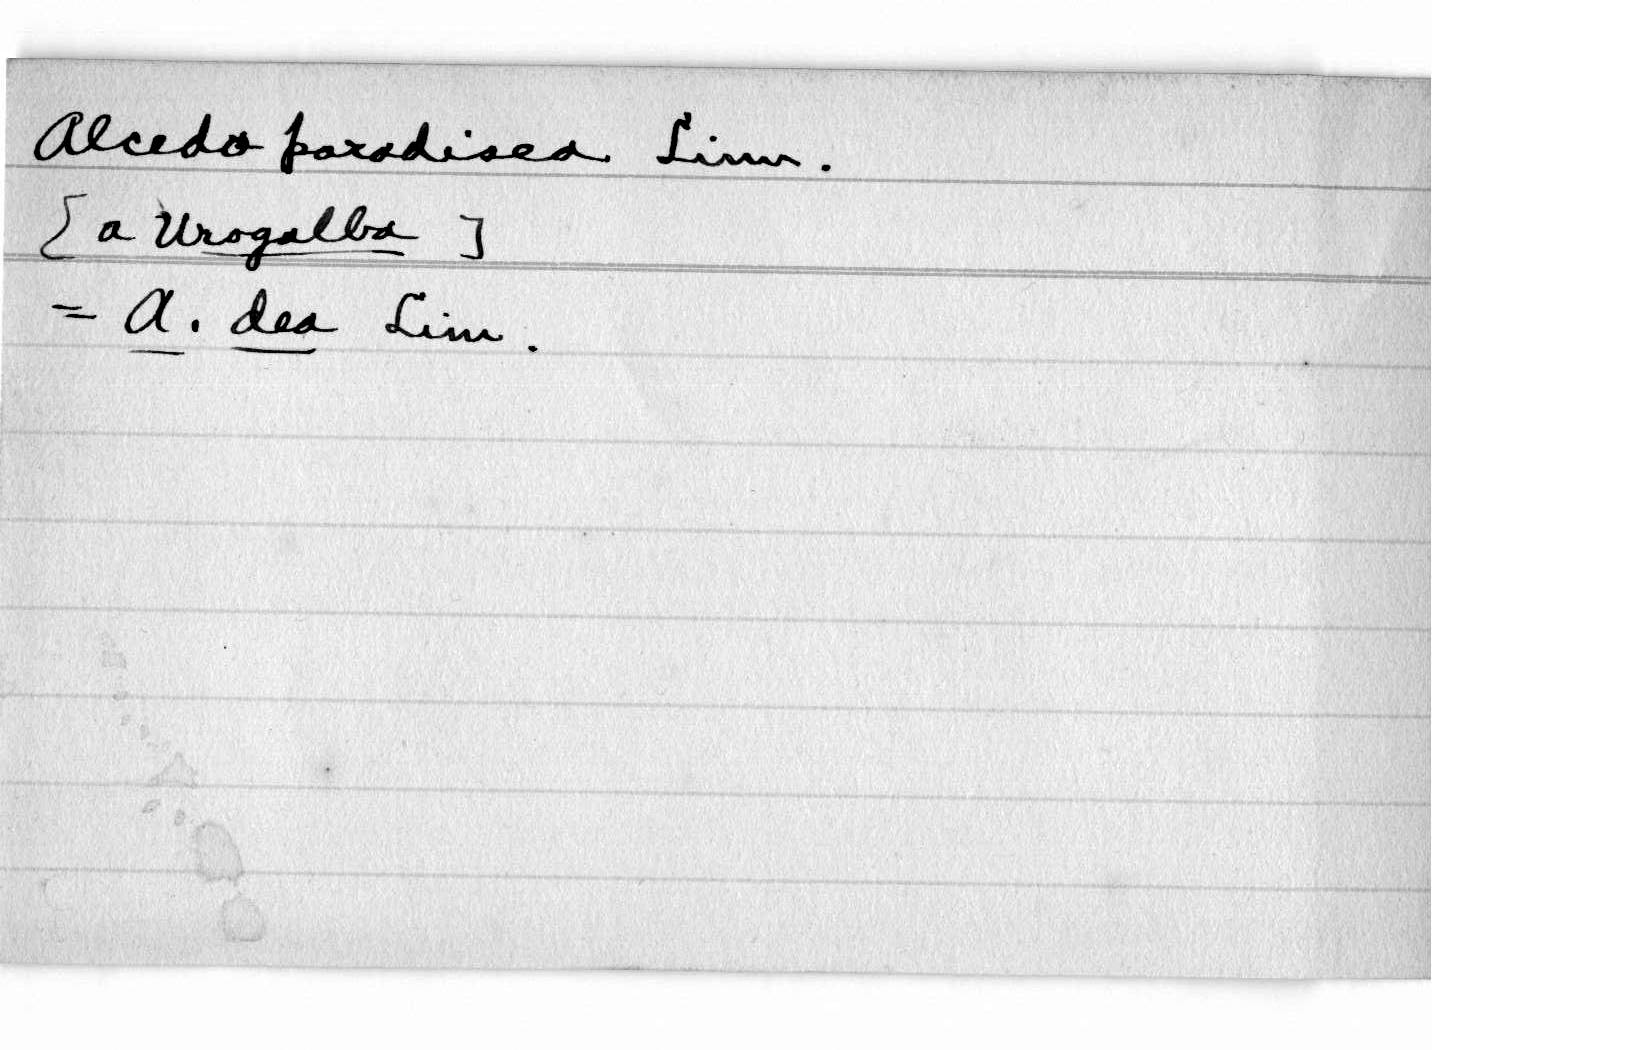 Alcedo paradisea Linn.
[a Urogalba]
= A. dea Linn.